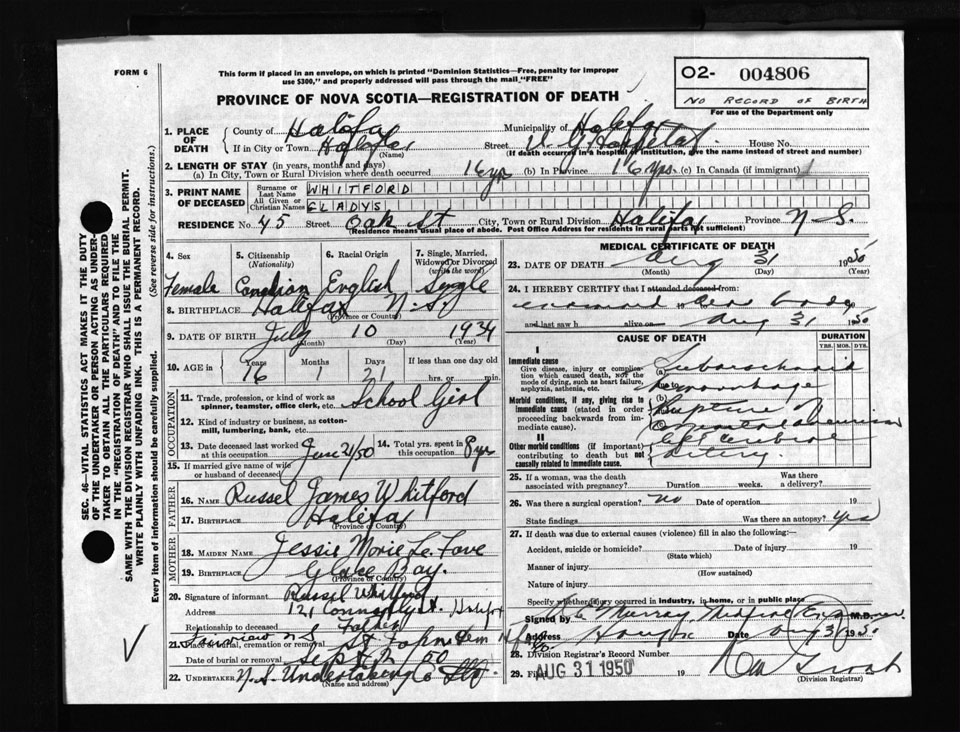 FORM 6
This form if placed in an envelope, on which is printed "Dominion Statistics—Free, penalty for improper
use $300," and properly addressed will pass through the mail "FREE"
O2- 004806
NO RECORD OF BIRTH
For use of the Department only
PROVINCE OF NOVA SCOTIA—REGISTRATION OF DEATH
1. PLACE OF DEATH
County of Halifax Municipality of Halifax
If in City or Town Halifax (Name) Street V. G. Hospital House No.
(If death occurred in a hospital or institution, give the name instead of street and number)
2. LENGTH OF STAY (in years, months and days)
(a) In City, Town or Rural Division where death occurred 16 yrs (b) In Province 16 yrs. (c) In Canada (if immigrant)
3. PRINT NAME OF DECEASED
Surname or Last Name WHITFORD
All Given or Christian Names GLADYS
RESIDENCE No. 45 Street Oak St City, Town or Rural Division Halifax Province N S.
(Residence means usual place of abode. Post Office Address for residents in rural parts not sufficient)
SEC. 46—VITAL STATISTICS ACT MAKES IT THE DUTY
OF THE UNDERTAKER OR PERSON ACTING AS UNDER-
TAKER TO OBTAIN ALL THE PARTICULARS REQUIRED
IN THE "REGISTRATION OF DEATH" AND TO FILE THE
SAME WITH THE DIVISION REGISTRAR WHO SHALL ISSUE THE BURIAL PERMIT.
WRITE PLAINLY WITH UNFADING INK. THIS IS A PERMANENT RECORD.
Every item of information should be carefully supplied. (See reverse side for instructions.)
4. Sex 5. Citizenship (Nationality) 6. Racial Origin 7. Single, Married, Widowed or Divorced (write the word)
Female Canadian English Single
8. BIRTHPLACE Halifax N.S.
(Province or Country)
9. DATE OF BIRTH July 10 1934
(Month) (Day) (Year)
10. AGE in Years Months Days If less than one day old
16 1 21 hrs. or min.
OCCUPATION
11. Trade, profession, or kind of work as spinner, teamster, office clerk, etc. School Girl
12. Kind of industry or business, as cotton-mill, lumbering, bank, etc.
13. Date deceased last worked at this occupation June 21/50 14. Total yrs. spent in this occupation 8 yrs
15. If married give name of wife or husband of deceased
FATHER
16. NAME Russel James Whitford
17. BIRTHPLACE Halifax
(Province or Country)
MOTHER
18. MAIDEN NAME Jessie Marie Le Fave
19. BIRTHPLACE Glace Bay.
(Province or Country)
20. Signature of informant Russel Whitford
Address 121 St.
Relationship to deceased Father
21. Place of burial, cremation or removal Fairview N S St. Johns Cem
Date of burial or removal Sept 2 50
22. UNDERTAKER N.S. Undertaking Co Ltd.
(Name and address)
MEDICAL CERTIFICATE OF DEATH
23. DATE OF DEATH Aug 31 1950
(Month) (Day) (Year)
24. I HEREBY CERTIFY that I attended deceased from:
examined dead body
and last saw h alive on Aug 31 1950
CAUSE OF DEATH DURATION
YRS. MOS. DYS.
I
Immediate cause
Give disease, injury or complication which caused death, NOT the mode of dying, such as heart failure, asphyxia, asthenia, etc.
(a) Subarachnoid
due to hemorrhage
Morbid conditions, if any, giving rise to immediate cause (stated in order proceeding backwards from immediate cause).
(b) Rupture of
(c) congenital aneurism
II
Other morbid conditions (if important) contributing to death but not causally related to immediate cause.
left cerebral
artery.
25. If a woman, was the death associated with pregnancy? Duration weeks. Was there a delivery?
26. Was there a surgical operation? no Date of operation 19
State findings Was there an autopsy? yes
27. If death was due to external causes (violence) fill in also the following:
Accident, suicide or homicide? Date of injury 19
(State which)
Manner of injury
(How sustained)
Nature of injury
Specify whether injury occurred in industry, in home, or in public place
Signed by Murray Medical M.D.
Address Halifax Date Aug 31 1950
28. Division Registrar's Record Number
29. Filed AUG 31 1950 19
(Division Registrar)